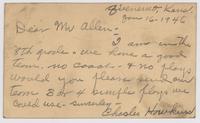 Kans.
Jan 16-1946
Dear Mr Allen -
I am in the
8th grade - we have a good
team - no coach - & no plays
would you please send our
team 3 or 4 simple plays we
could use - sincerely -
Charles Hawkins